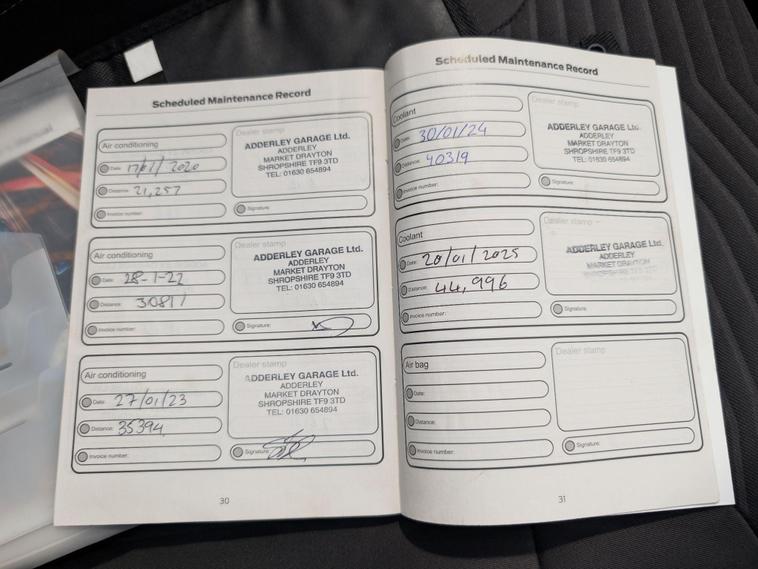 Scheduled Maintenance Record
Air conditioning
Date: 17/1/2020
Distance: 21,257
Invoice number:
Dealer stamp
ADDERLEY GARAGE Ltd.
ADDERLEY
MARKET DRAYTON
SHROPSHIRE TF9 3TD
TEL: 01630 654894
Signature:
Air conditioning
Date: 28-1-22
Distance: 30811
Invoice number:
Dealer stamp
ADDERLEY GARAGE Ltd.
ADDERLEY
MARKET DRAYTON
SHROPSHIRE TF9 3TD
TEL: 01630 654894
Signature:
Air conditioning
Date: 27/01/23
Distance: 35394
Invoice number:
Dealer stamp
ADDERLEY GARAGE Ltd.
ADDERLEY
MARKET DRAYTON
SHROPSHIRE TF9 3TD
TEL: 01630 654894
Signature:
30
Scheduled Maintenance Record
Coolant
Date: 30/01/24
Distance: 40319
Invoice number:
Dealer stamp
ADDERLEY GARAGE Ltd.
ADDERLEY
MARKET DRAYTON
SHROPSHIRE TF9 3TD
TEL: 01630 654894
Signature:
Coolant
Date: 20/01/2025
Distance: 44,996
Invoice number:
Dealer stamp
ADDERLEY GARAGE Ltd.
ADDERLEY
MARKET DRAYTON
Signature:
Air bag
Date:
Distance:
Invoice number:
Dealer stamp
Signature:
31